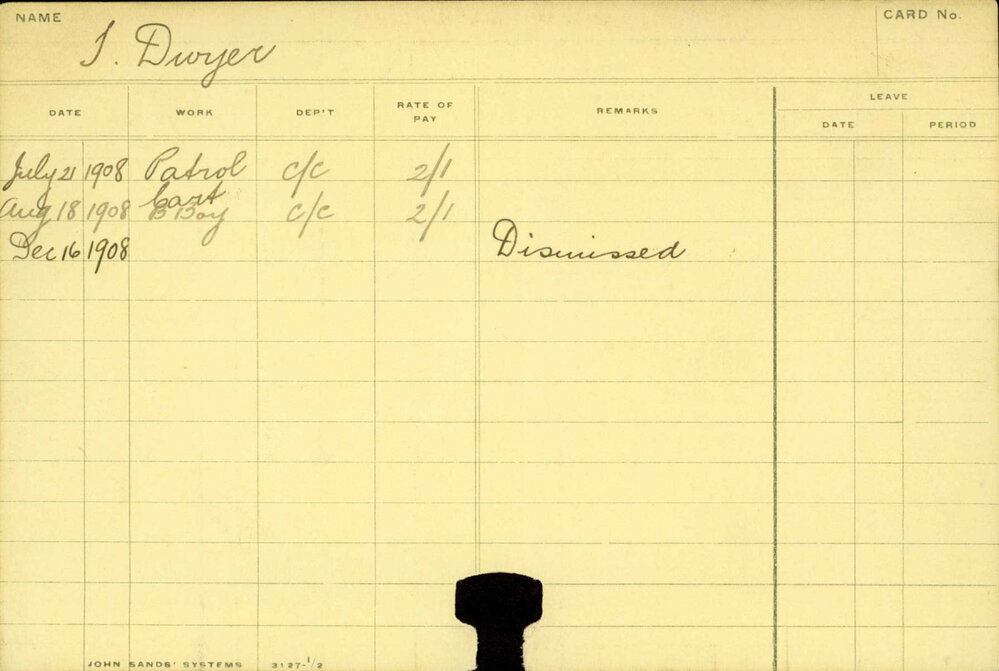 NAME
CARD No.
Dwyer
DATE WORK DEP'T RATE OF PAY REMARKS LEAVE
DATE PERIOD
July 21 1908 Patrol c/c 2/1
Aug 18 1908 Cart Boy c/c 2/1
Dec 16 1908 Dismissed
JOHN SANDS' SYSTEMS 3127-1/2